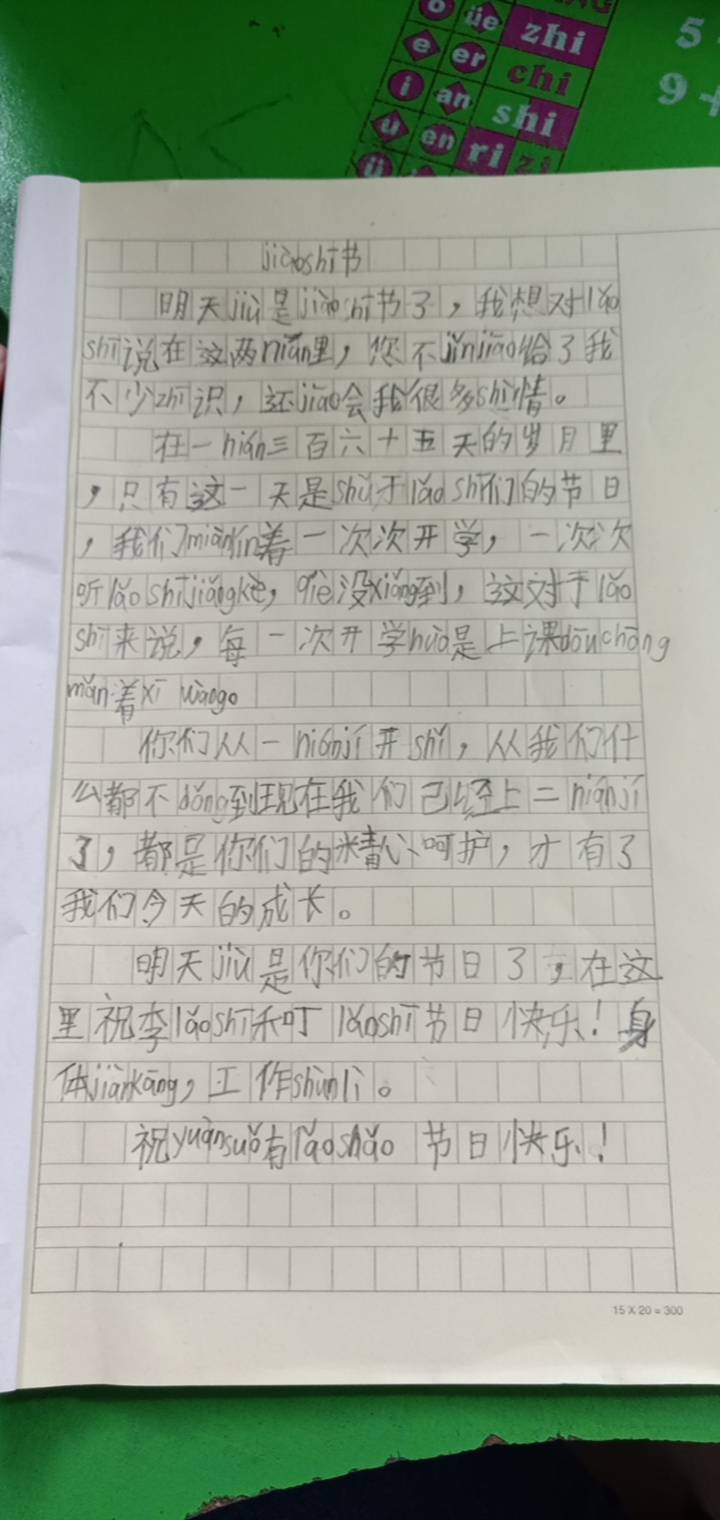 o üe zhi
e er chi
i an shi
u en ri zi
ü
5
9+
jiàoshī节
明天jiù是jiàoshī节了，我想对lǎo
shī说在这两nián里，您不jǐnjiāo给了我
不少zhī识，还jiāo会我很多shì情。
在一nián三百六十五天的岁月里
，只有这一天是shǔ于lǎoshī们的节日
，我们miànlín着一次次开学，一次次
听lǎoshījiǎngkè，què没xiǎng到，这对于lǎo
shī来说，每一次开学huò是上课dōuchōng
mǎn着xīwàng。
你们从一niánjí开shǐ，从我们什
么都不dǒng到现在我们已经上二niánjí
了，都是你们的精心呵护，才有了
我们今天的成长。
明天jiù是你们的节日了，在这
里祝李lǎoshī禾叮lǎoshī节日快乐！身
体jiànkāng，工作shùnlì。
祝yuànsuǒ有lǎoshǎo 节日快乐！
15×20=300